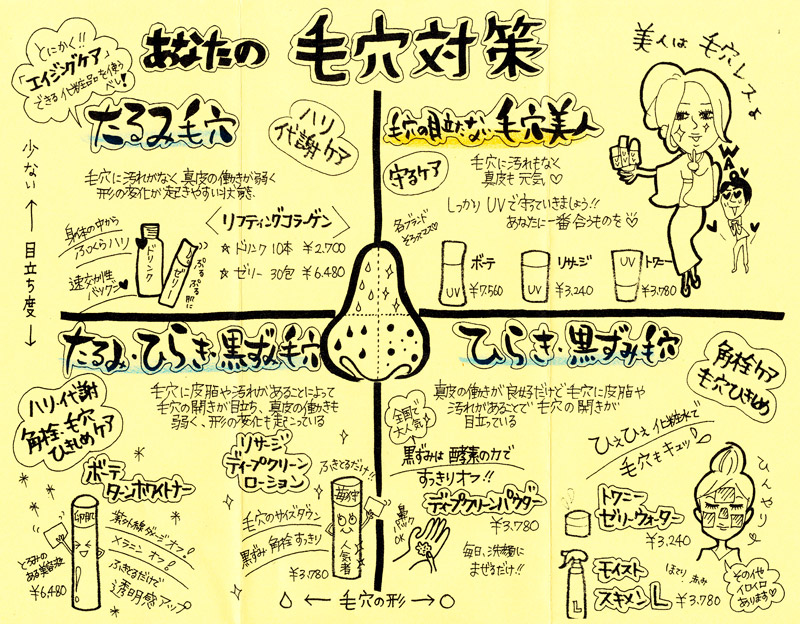 とにかく!!
「エイジングケア」
できる化粧品を使う
べし!
あなたの 毛穴対策
美人は 毛穴レスよ
少ない ← 目立ち度 →
たるみ毛穴
ハリ
代謝ケア
毛穴に汚れがなく、真皮の働きが弱く
形の変化が起きやすい状態、
身体の中から
ふっくらハリ
速攻が性
バツグン
ドリンク
ゼリー
ぷるぷる肌に
〈リフティングコラーゲン〉
☆ ドリンク 10本 ¥2.700
☆ ゼリー 30包 ¥6.480
毛穴の目立たない 毛穴美人
守るケア
毛穴に汚れもなく
真皮も元気♡
しっかり UVで守っていきましょう!!
あなたに一番合うものを♡
名ブランド
そろってマス♡
UV
ボーテ
¥7.560
UV
リサージ
¥3.240
UV
トワニー
¥3.780
WAO
たるみ・ひらき・黒ずみ毛穴
ハリ・代謝
角栓・毛穴
ひきしめケア
毛穴に皮脂や汚れがあることによって
毛穴の開きが目立ち、真皮の働きも
弱く、形の変化も起こっている
ボーテ
ターンホワイトナー
卵肌
とろみの
ある美容液
¥6.480
紫外線ダメージオフ!
メラニン オフ!
ふきとるだけで
透明感アップ
リサージ
ディープクリーン
ローション
ふきとるだけ!!
毛穴のサイズダウン
黒ずみ 角栓すっきり
¥3.780
人気者
ひらき・黒ずみ毛穴
角栓ケア
毛穴ひきしめ
真皮の働きが良好だけど毛穴に皮脂や
汚れがあることで毛穴の開きが
目立っている
全国で
大人気!
黒ずみは 酵素の力で
すっきりオフ!!
ディープクリーンパウダー
¥3.780
鼻
パック
OK
毎日、洗顔に
まぜるだけ!!
ひえひえ 化粧水で
毛穴もキュッ
ひんやり
トワニー
ゼリーウォーター
¥3.240
モイスト
スキメンL
L
¥3.780
その他
イロイロ
あります♡
← 毛穴の形 → ○